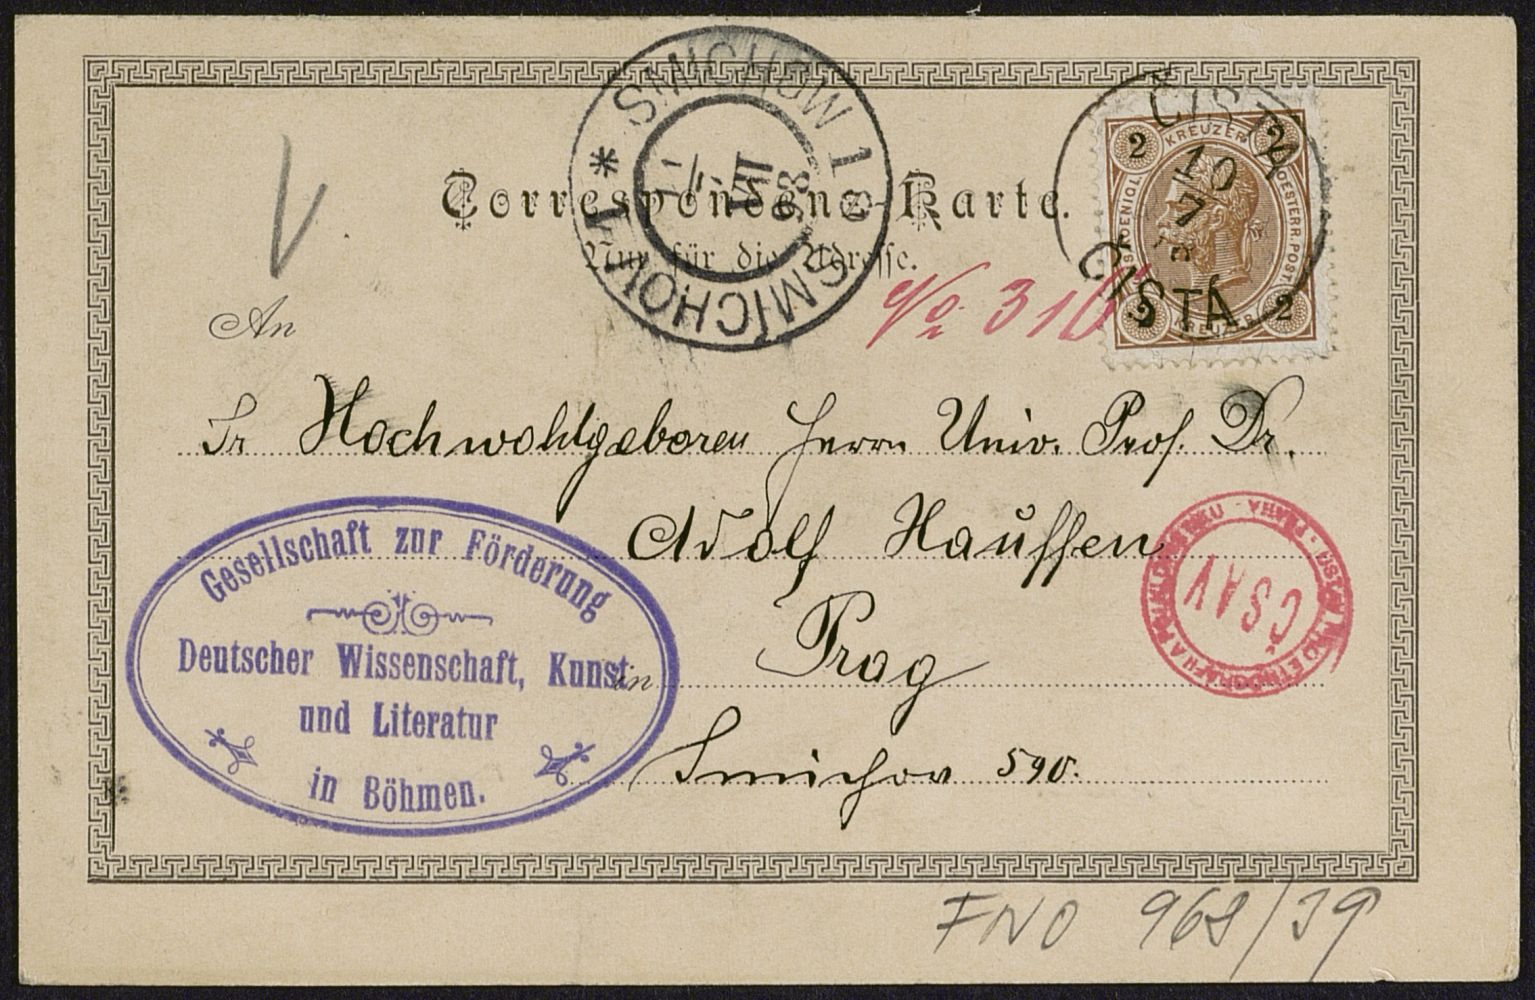 SMICHOW 1
* SMÍCHOV 1 *
11
VII
98
ČISTÁ
10
7
ČISTÁ
2 KREUZER 2
2 KREUZER 2
Correspondenz-Karte.
Nur für die Adresse.
No 310
V
An
Sr Hochwohlgeboren Herrn Univ. Prof. Dr.
Adolf Hauffen
in Prag
Smichov 590.
Gesellschaft zur Förderung
Deutscher Wissenschaft, Kunst
und Literatur
in Böhmen.
ČSAV
FNO 968/39